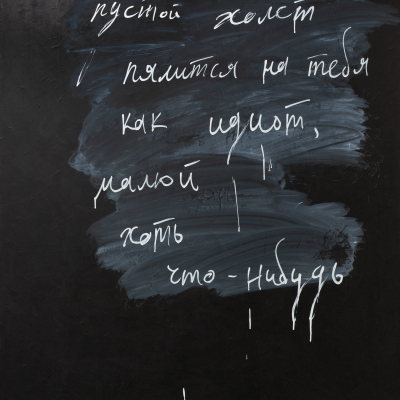 пустой холст
пялится на тебя
как идиот,
малюй
хоть
что-нибудь